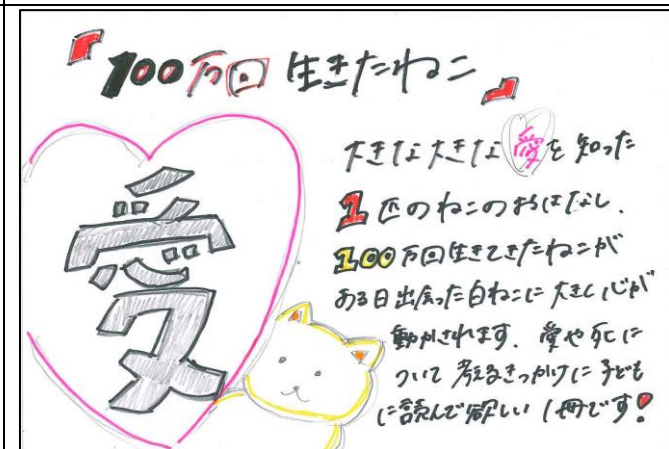 『100万回生きたねこ』
愛
大きな大きな愛を知った
1匹のねこのおはなし.
100万回生きてきたねこが
ある日出会った白ねこに大きく心が
動かされます. 愛や死に
ついて考えるきっかけに子ども
に読んで欲しい1冊です!